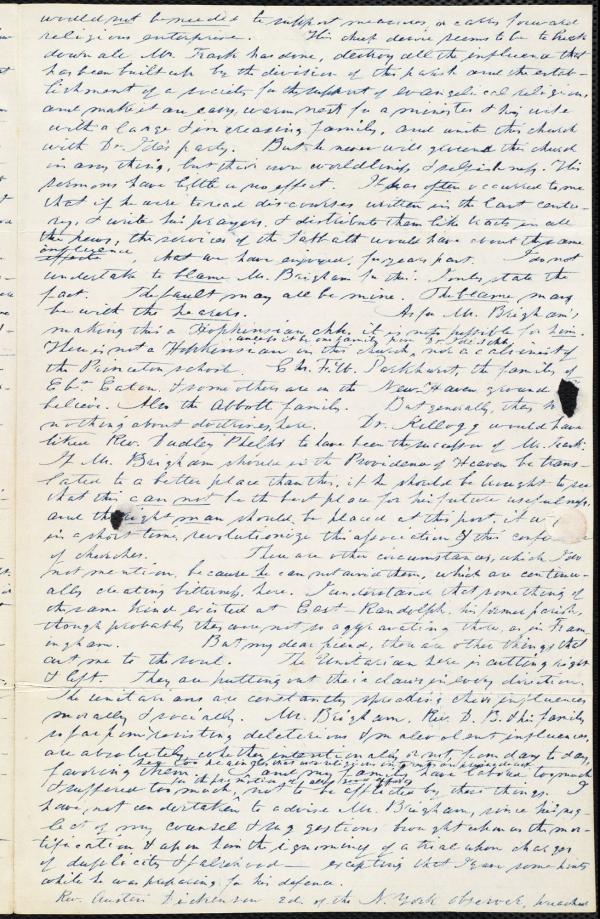 would not be needed to support measures, or calls forward
religious enterprise. His chief desire seems to be to break
down all Mr. Trask has done, destroy all the influence that
has been built up by the division of the parish and the estab-
lishment of a society for the support of evangelical religion,
and make it an easy, warm nest for a minister & his wife
with a large & increasing family, and unite this church
with Dr. Ide's party. But he never will unite this church
in any thing, but their own worldliness & selfishness. His
sermons have little or no effect. It has often occurred to me
that if he were to read discourses written in the last centu-
ry, & write his prayers, & distribute them like tracts in all
the pews, the services of the Sabbath would have about the same
influence
that we have enjoyed, for years past. I do not
undertake to blame Mr. Brigham for this. I only state the
fact. The fault may all be mine. The blame may
be with the hearers. As for Mr. Brigham's
making this a Hopkinsian chh, it is not possible for him.
unless it be one family from Dr. Ide's chh,
There is not a Hopkinsian in this church, nor a calvinist of
the Princeton school. the families of
Eb. Eaton, & some others are on the New Haven ground
believe. Also the Abbott family. But generally, they
nothing about doctrines, here. Dr. Kellogg would have
liked Rev. Dudley Phelps to have been the successor of Mr. Trask.
If Mr. Brigham should in the Providence of Heaven be trans-
lated to a better place than this, if he should be brought to see
that this can not be the best place for his future usefulness,
and the right man should be placed at this post, it
in a short time, revolutionize this association & this
of churches. There are other circumstances, which I do
not mention, because he can not avoid them, which are continu-
ally creating bitterness, here. I understand that something of
the same kind existed at East Randolph, his former parish,
though probably they were not so aggravating there, as in Fram-
ingham. But my dear friend, there are other things that
cut me to the soul. The Unitarian here is cutting right
& left. They are putting out their claws in every direction.
The unitarians are constantly spreading their influences
morally & socially. Mr. Brigham, Rev. D. B. & his family
so far from resisting deleterious & malevolent influences,
are absolutely, whether intentionally or not, from day to day,
favoring them. I and my family have labored too much
& suffered too much, not to be affected by these things. I
have not undertaken to advise Mr. Brigham, since his neg-
lect of my counsel & suggestions brought upon us the mor-
tification, & upon him the ignominy of a trial upon charges
of duplicity & falsehood — excepting that I gave some hints
while he was preparing for his defence.
Rev. Austin Dickinson ed. of the N. York observer, preached